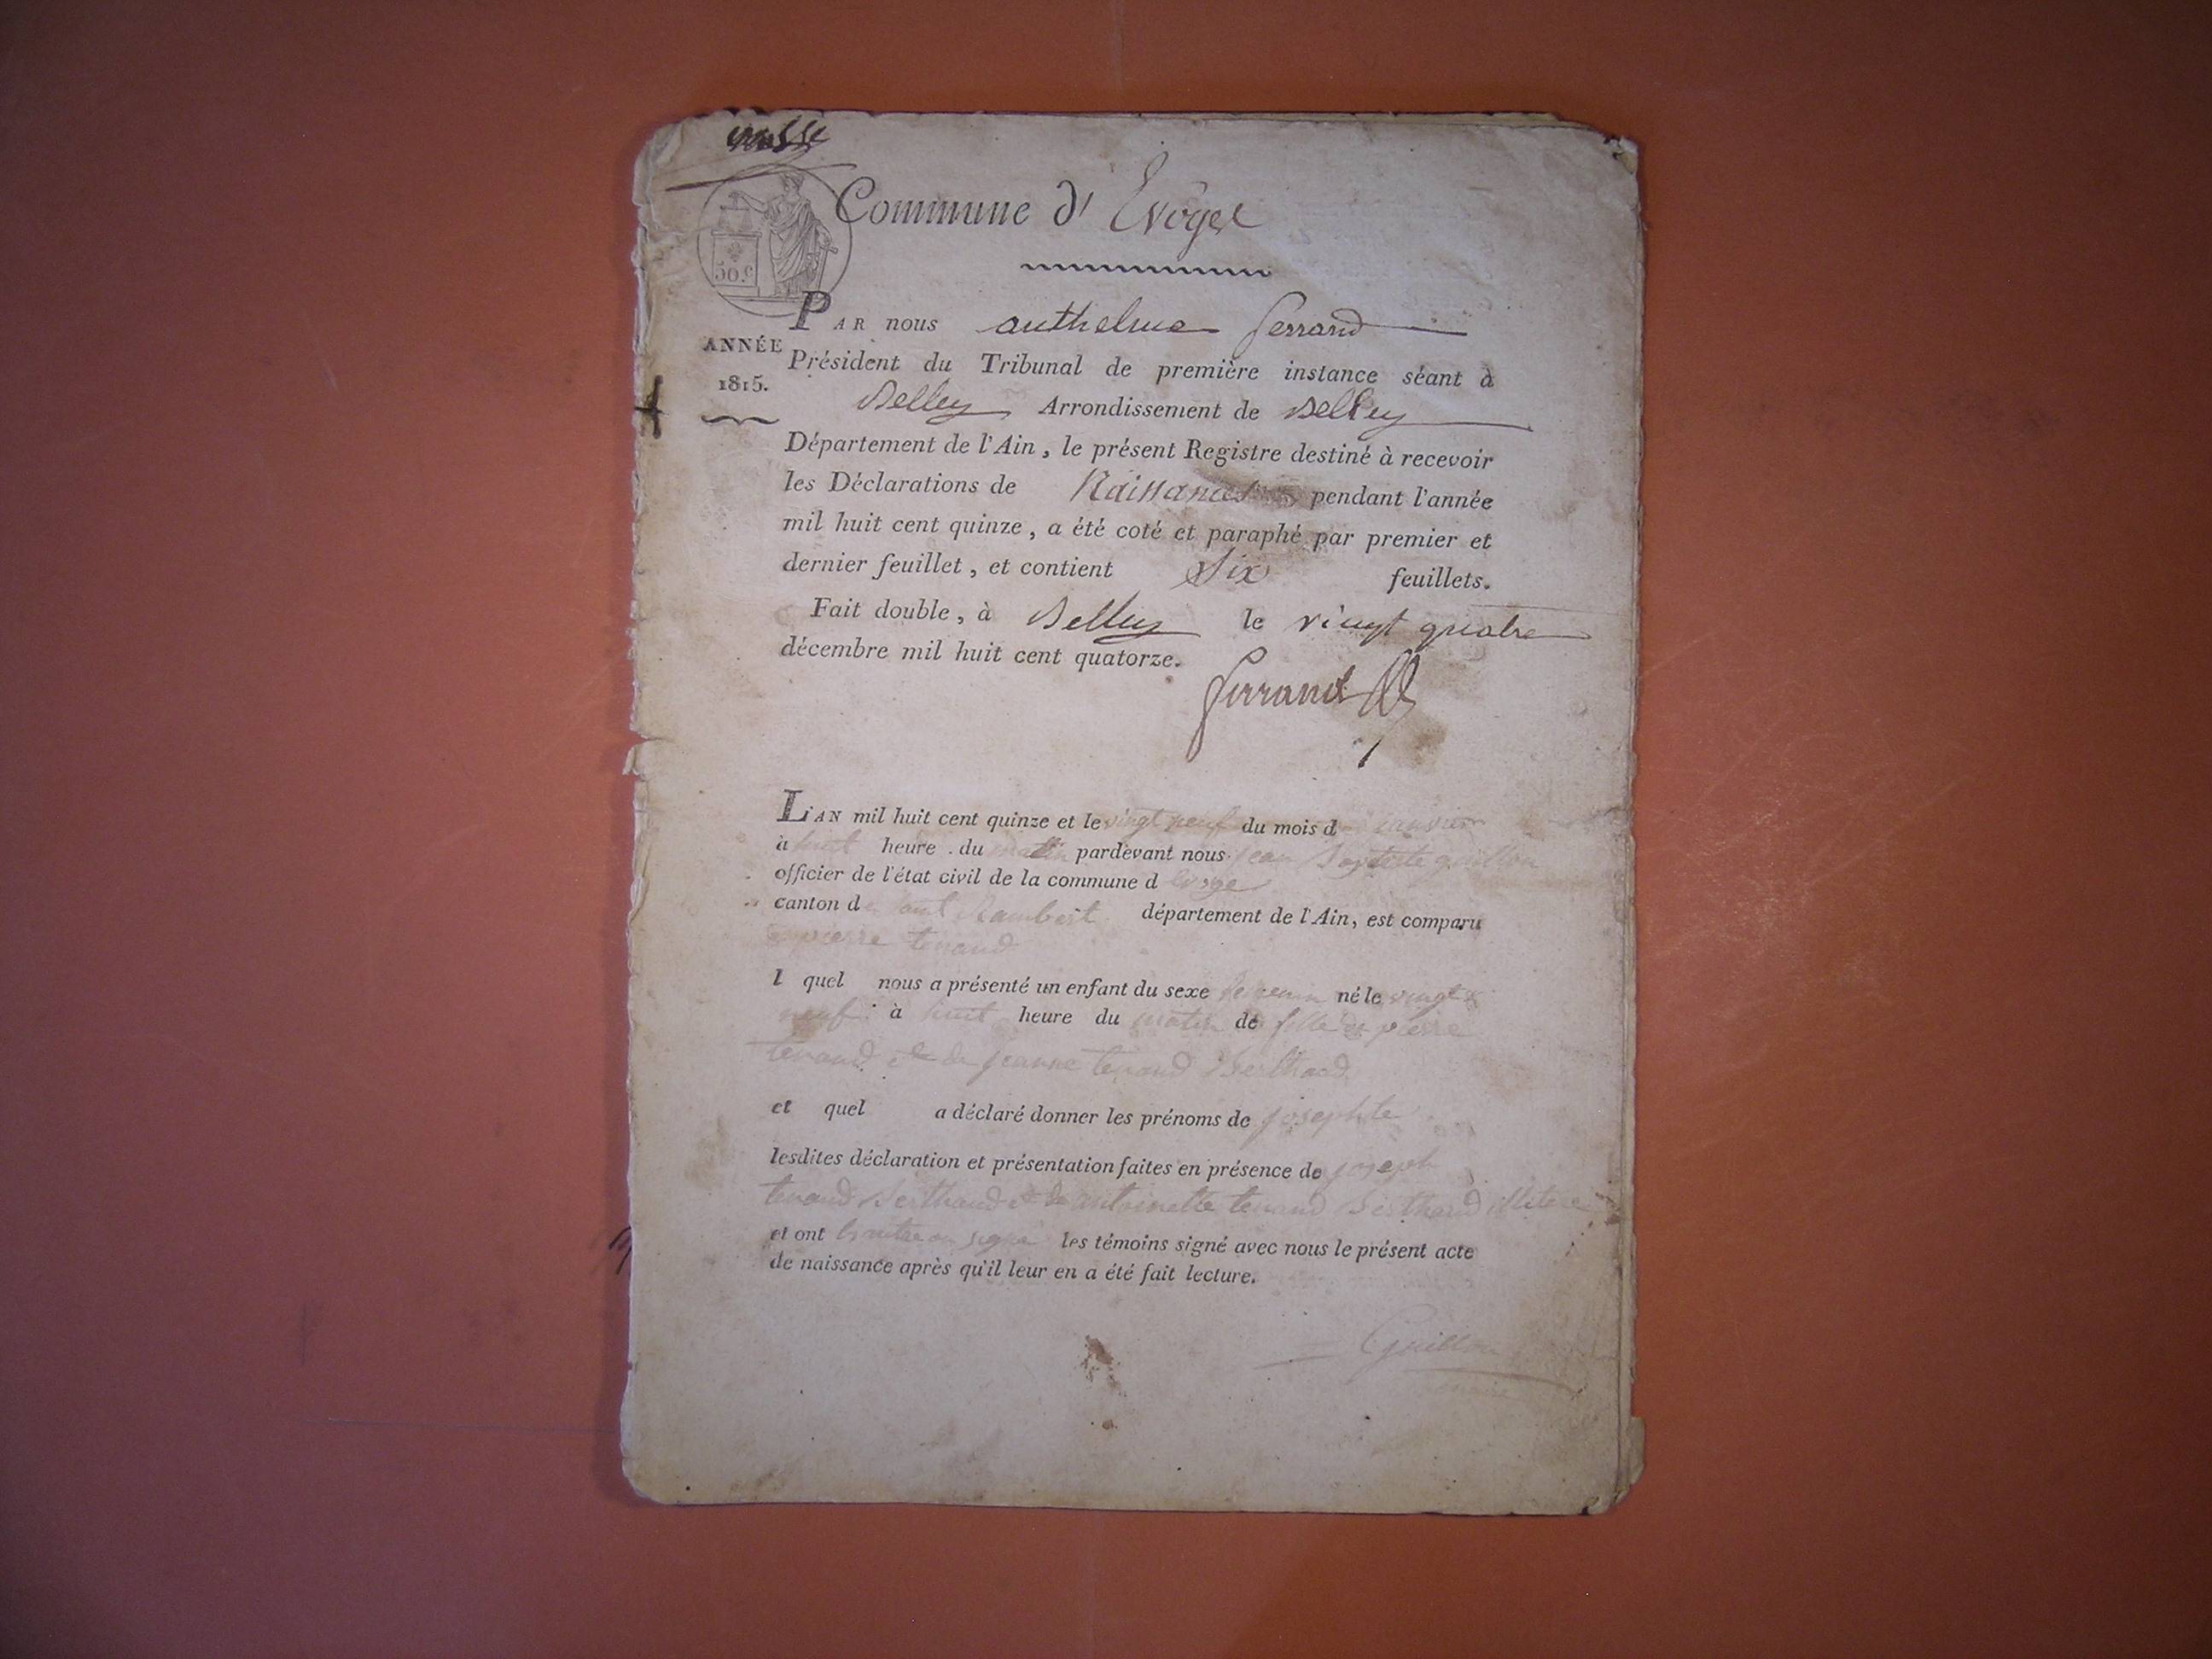 Commune d' Evoges
50.c
PAR nous anthelme ferrand
ANNÉE
1815.
Président du Tribunal de première instance séant à
Belley Arrondissement de Belley
Département de l'Ain, le présent Registre destiné à recevoir
les Déclarations de Naissances pendant l'année
mil huit cent quinze, a été coté et paraphé par premier et
dernier feuillet, et contient Six feuillets.
Fait double, à Belley le vingt quatre
décembre mil huit cent quatorze.
ferrand
L'AN mil huit cent quinze et le vingt neuf du mois d
à huit heure . du matin pardevant nous jean Baptiste guillon
officier de l'état civil de la commune d evoge
canton de Saint Rambert département de l'Ain, est comparu
pierre tenand
l quel nous a présenté un enfant du sexe né le vingt
neuf à huit heure du matin de fille de pierre
tenand et de jeanne tenand Berthaud
et quel a déclaré donner les prénoms de josephte
lesdites déclaration et présentation faites en présence de joseph
tenand Berthaud et de antoinette tenand Berthaud
et ont les témoins signé avec nous le présent acte
de naissance après qu'il leur en a été fait lecture.
Guillon